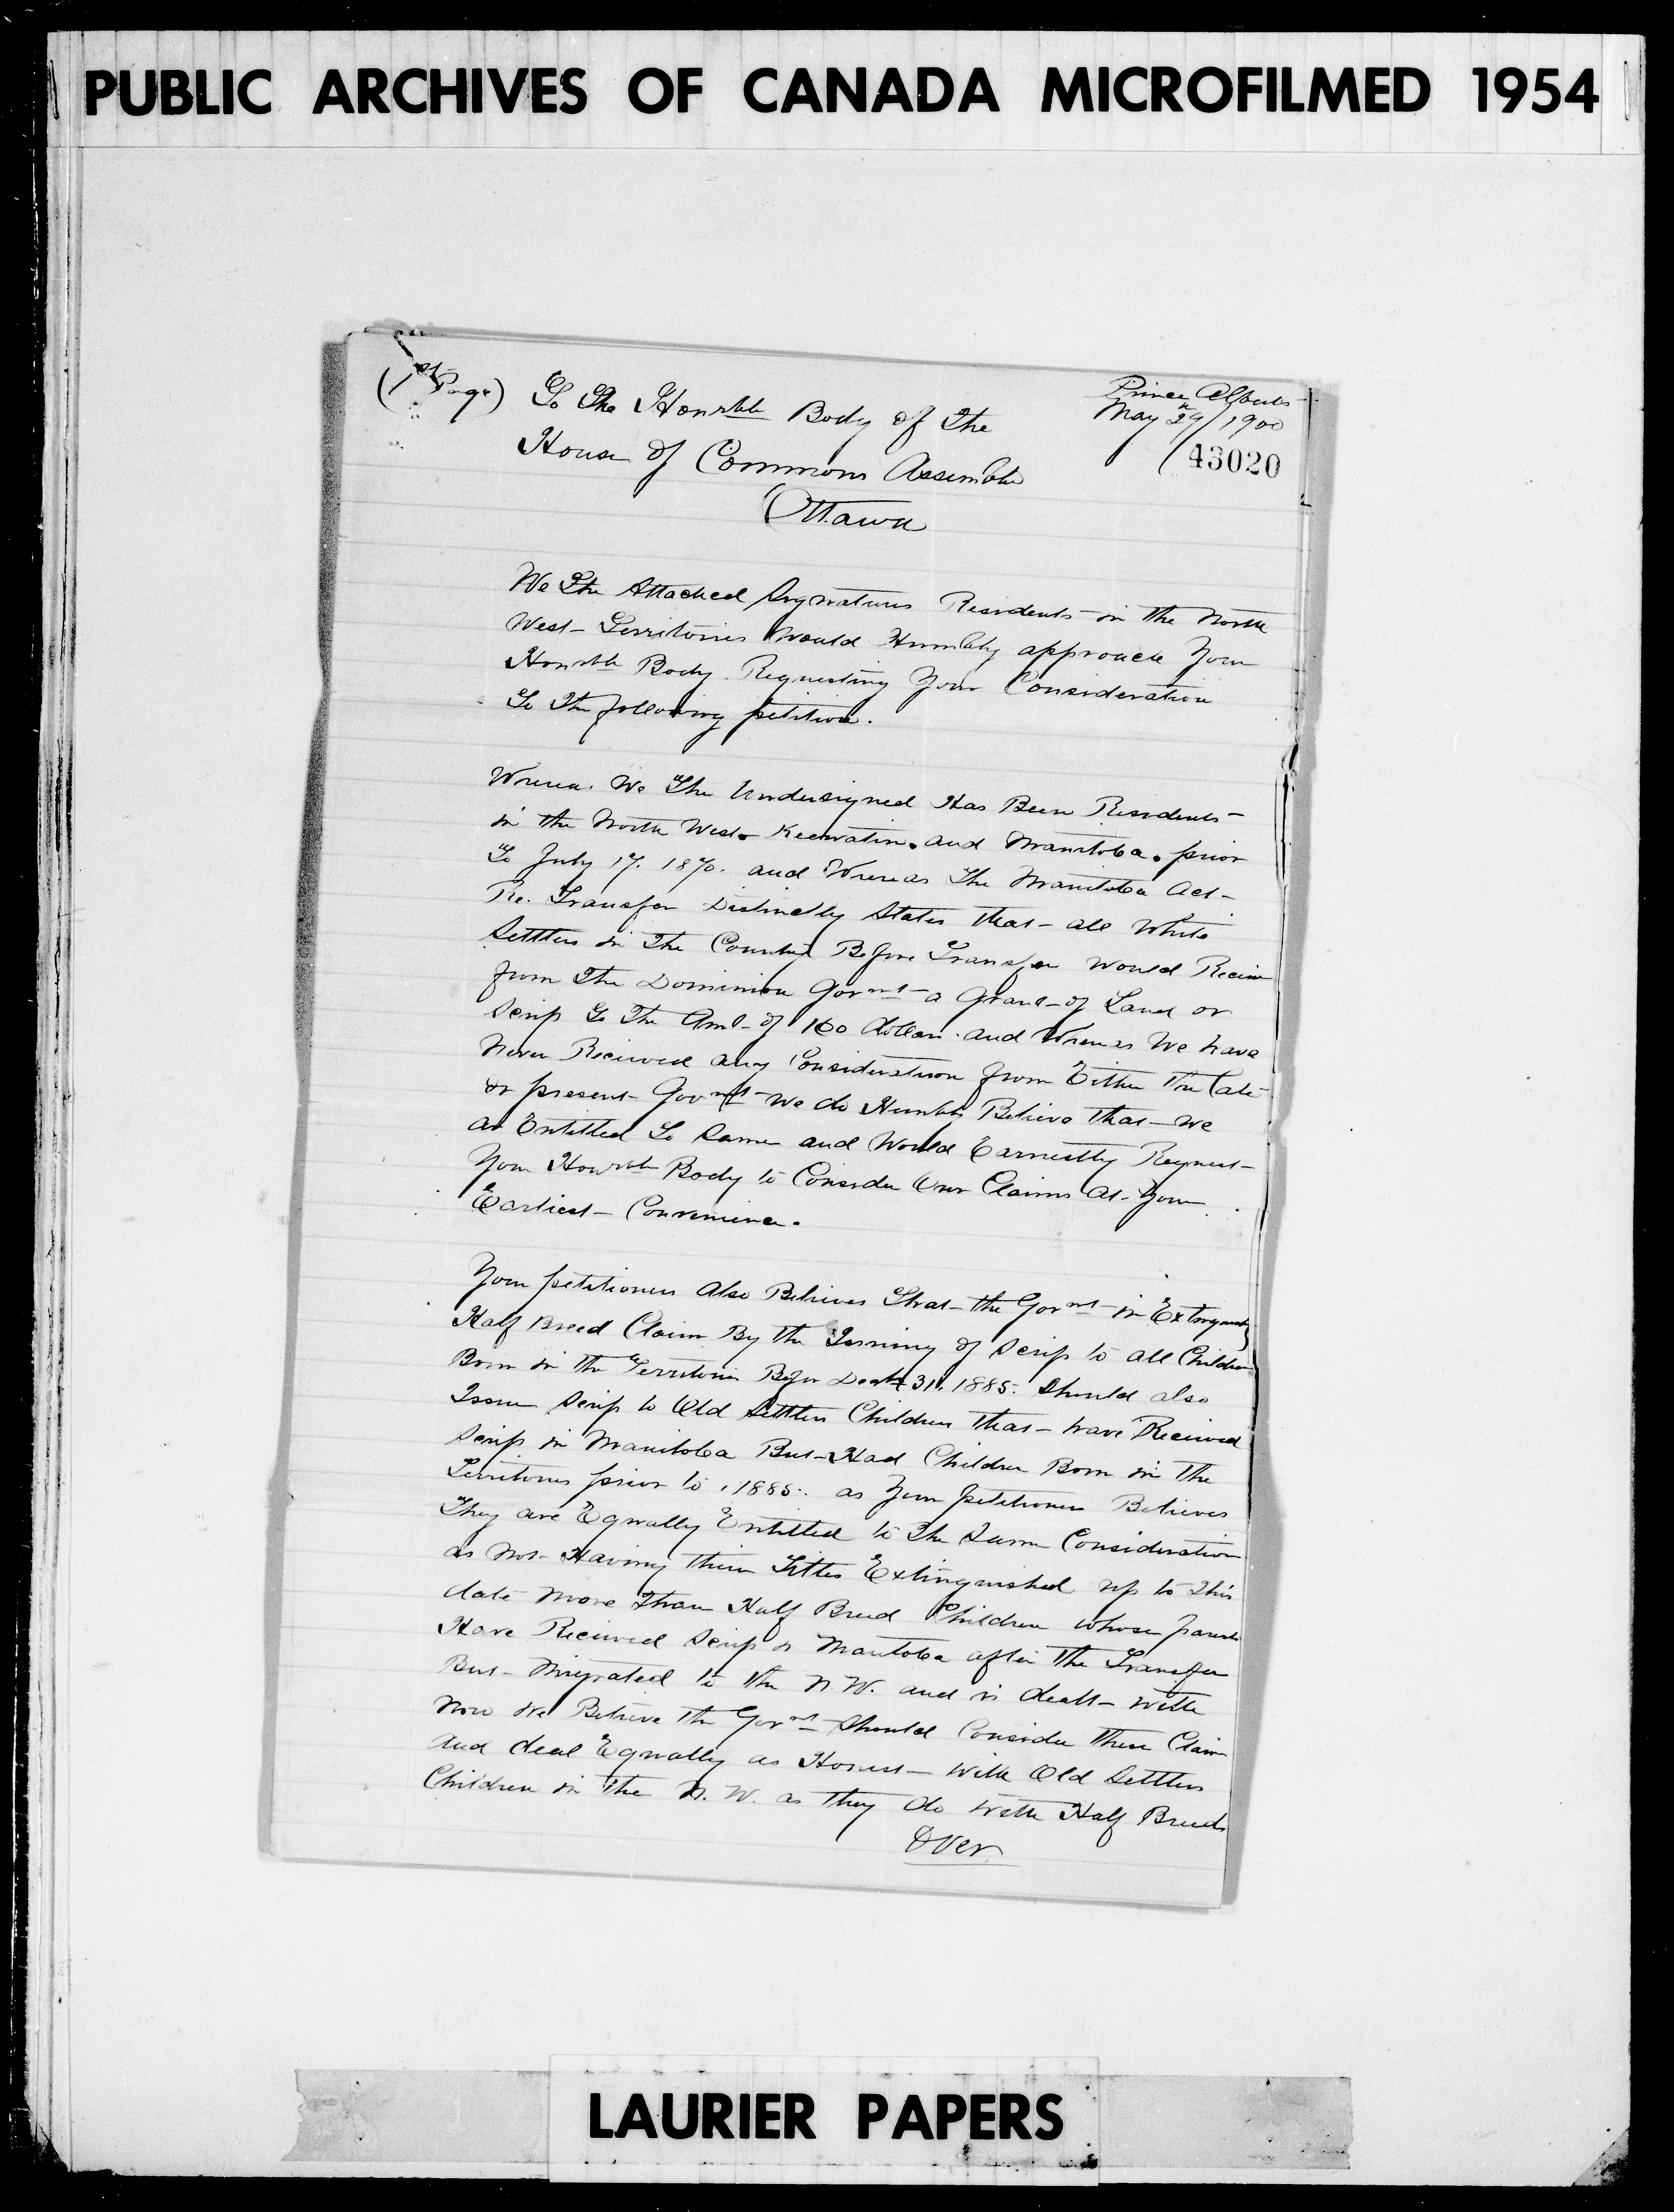 PUBLIC ARCHIVES OF CANADA MICROFILMED 1954
(1st Page)
Prince Albert
May 29/1900
43020
To The Honrble Body of The
House of Commons Assemble
Ottawa
We The Attached Signatures Residents in the North
West Territories Would Humbly approach Your
Honrble Body Requesting Your Consideration
To The following petition.
We The Undersigned Has Been Residents
in the North West. Keewatin. and Manitoba. prior
To July 17. 1870. and Whereas The Manitoba Act
Re. Transfer Distinctly States that all White
Settlers in The Country Before Transfer Would Receive
from The Dominion Govrnt a Grant of Land or
Scrip To The Amt of 160 dollars. and Whereas We have
Never Received any Consideration from Either The late
or present Govrnt We do Humbly Believe that We
are Entitled To Same and Would Earnestly Request
Your Honrble Body to Consider Our Claims at Your
Earliest Convenience.
Your petitioners Also Believes That the Govrnt in
Half Breed Claim By the Issuing of Scrip to all Children
Born in the Territories Before 31. 1885. Should also
Issue Scrip to Old Settlers Children that have Received
Scrip in Manitoba But Had Children Born in the
Territories prior to 1885. as Your petitioners Believes
They are Equally Entitled to The Same Consideration
as Not Having their Titles Extinguished up to This
date More Than Half Breed Children whose parents
Have Received Scrip in Manitoba after The Transfer
But Migrated to the N.W. and is dealt with
Now We Believe the Govrnt Should Consider These Claim
And deal Equally as Honest with Old Settlers
Children in the N.W. as they do with Half Breeds
Over
LAURIER PAPERS